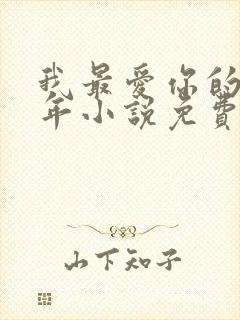 我最爱你的
年小说免費
山下知子